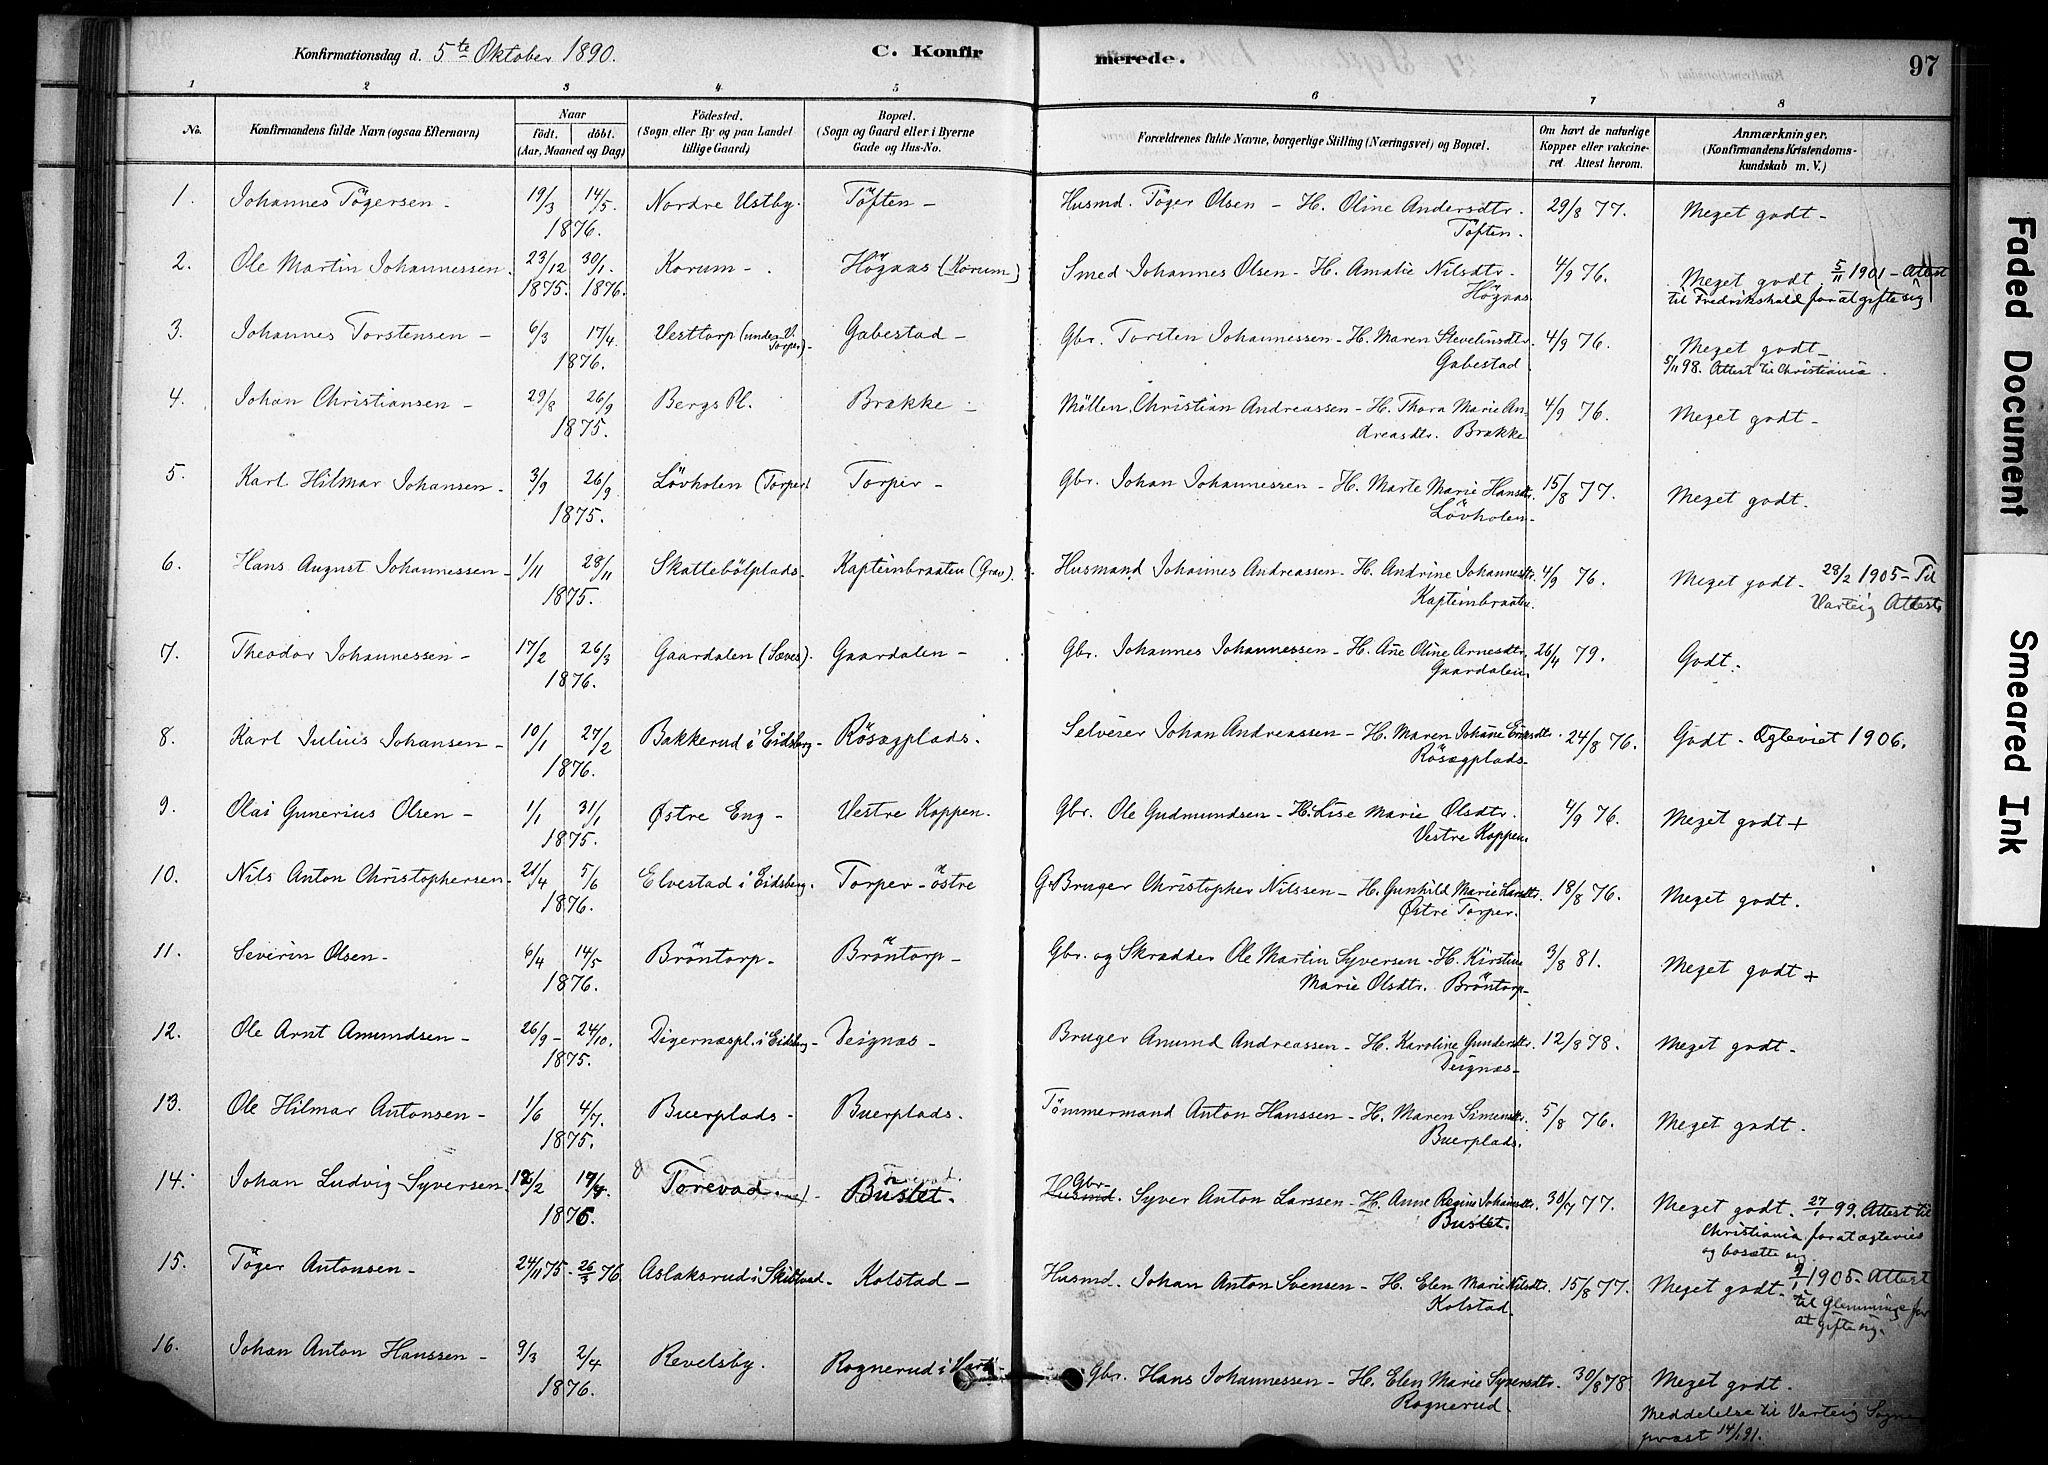 Konfirmationsdag d. 5te Oktober 1890.
C. Konfir
merede.
97
1 2 3 4 5 6 7 8
No.
Konfirmandens fulde Navn (ogsaa Efternavn)
Naar
født. døbt.
(Aar, Maaned og Dag)
Fødested.
(Sogn eller By og paa Landet
tillige Gaard)
Bopæl.
(Sogn og Gaard eller i Byerne
Gade og Hus-No.
Forældrenes fulde Navne, borgerlige Stilling (Næringsvei) og Bopæl.
Om havt de naturlige
Kopper eller vakcine-
ret. Attest herom.
Anmærkninger.
(Konfirmandens Kristendoms-
kundskab m. V.)
1. Johannes Tögersen - 19/3 14/5 Nordre Ustby. Töften - Husmd. Töger Olsen - H. Oline Andersdtr. 29/8 77. Meget godt -
1876. Töften.
2. Ole Martin Johannessen. 23/12 30/1 Korum - Högnæs (Korum) Smed Johannes Olsen - H. Amalie Nilsdtr. 4/9 76. Meget godt. 5/11 1901 - Attest
1875. 1876. Högnæs til Fredrikshald for at gifte sig
3. Johannes Torstensen - 6/3 17/4 Vesttorp (under V. Torper) - Gabestad - Gbr. Torsten Johannessen - H. Maren Stevelinsdtr. 4/9 76. Meget godt -
1876. Gabestad 5/11 98. Attest til Christiania.
4. Johan Christiansen - 29/8 26/9 Bergs Pl. Brække - Möllen. Christian Andreassen - H. Thora Marie An- 4/9 76. Meget godt -
1875. dreasdtr. Brække
5. Karl Hilmar Johansen - 3/9 26/9 Lövholen (Torper) Torper - Gbr. Johan Johannessen - H. Marte Marie Hansdtr. 15/8 77. Meget godt.
1875. Lövholen -
6. Hans August Johannessen - 1/11 28/11 Skattebölplads. Kapteinbraaten (Grav). Husmand Johannes Andreassen - H. Andrine Johannesdtr. 4/9 76. Meget godt - 28/2 1905 - Til
1875. Kapteinbraaten. Varteig Attest
7. Theodor Johannessen - 17/2 26/3 Gaardalen (Sæves). Gaardalen - Gbr. Johannes Johannessen - H. Ane Oline Arnesdtr. 26/4 79. Godt -
1876. Gaardalen
8. Karl Julius Johansen - 10/1 27/2 Bakkerud i Eidsberg - Rösægplads. Selveier Johan Andreassen - H. Maren Johane Eriksdtr. 24/8 76. Godt - Ægteviet 1906.
1876. Rösægplads -
9. Olai Gunerius Olsen - 1/1 31/1 Østre Eng - Vestre Koppen. Gbr. Ole Gudmundsen - H. Lise Marie Olsdtr. 4/9 76. Meget godt +
1875. Vestre Koppen.
10. Nils Anton Christophersen - 21/4 5/6 Elvestad i Eidsberg. Torper - östre G. Bruger Christopher Nilssen - H. Gunhild Marie Larsdtr. 18/8 76. Meget godt.
1876. Østre Torper.
11. Severin Olsen - 6/4 14/5 Bröntorp - Bröntorp - Gbr. og Skrædder Ole Martin Syversen - H. Kirstine 3/8 81. Meget godt +
1876. Marie Olsdtr. Bröntorp -
12. Ole Arnt Amundsen - 26/9 - 24/10. Digernæspl. i Eidsberg - Deignæs - Bruger Amund Andreassen - H. Karoline Gundersdtr. 12/8 78. Meget godt -
1875. Deignæs -
13. Ole Hilmar Antonsen - 1/6 4/7 Buerplads - Buerplads. Tömmermand Anton Hanssen - H. Maren Simensdtr. 5/8 76. Meget godt.
1875. Buerplads.
14. Johan Ludvig Syversen. 12/2 17/4 Torevad Buslet. Gbr. Husmd. Syver Anton Larssen - H. Anne Regine Johansdtr. 30/7 77. Meget godt. 27/1 99. Attest til
1876. Buslet. Christiania for at ægtevies
og bosætte sig.
15. Töger Antonsen - 24/11 75 - 26/3 76 Aslaksrud i Skibtvad - Kolstad - Husmd. Johan Anton Svensen - H. Elen Marie Nilsdtr. 15/8 77. Meget godt - 9/1 1905 - Attest
Kolstad. til Glemminge for
at gifte sig.
16. Johan Anton Hanssen - 9/3 2/4 Revelsby. Rognerud i Vart. Gbr. Hans Johannessen - H. Elen Marie Syversdtr. 30/8 78 Meget godt.
1876. Rognerud. Meddelelse til Varteig Sogne
præst 14/1 91.
Faded Document
Smeared Ink